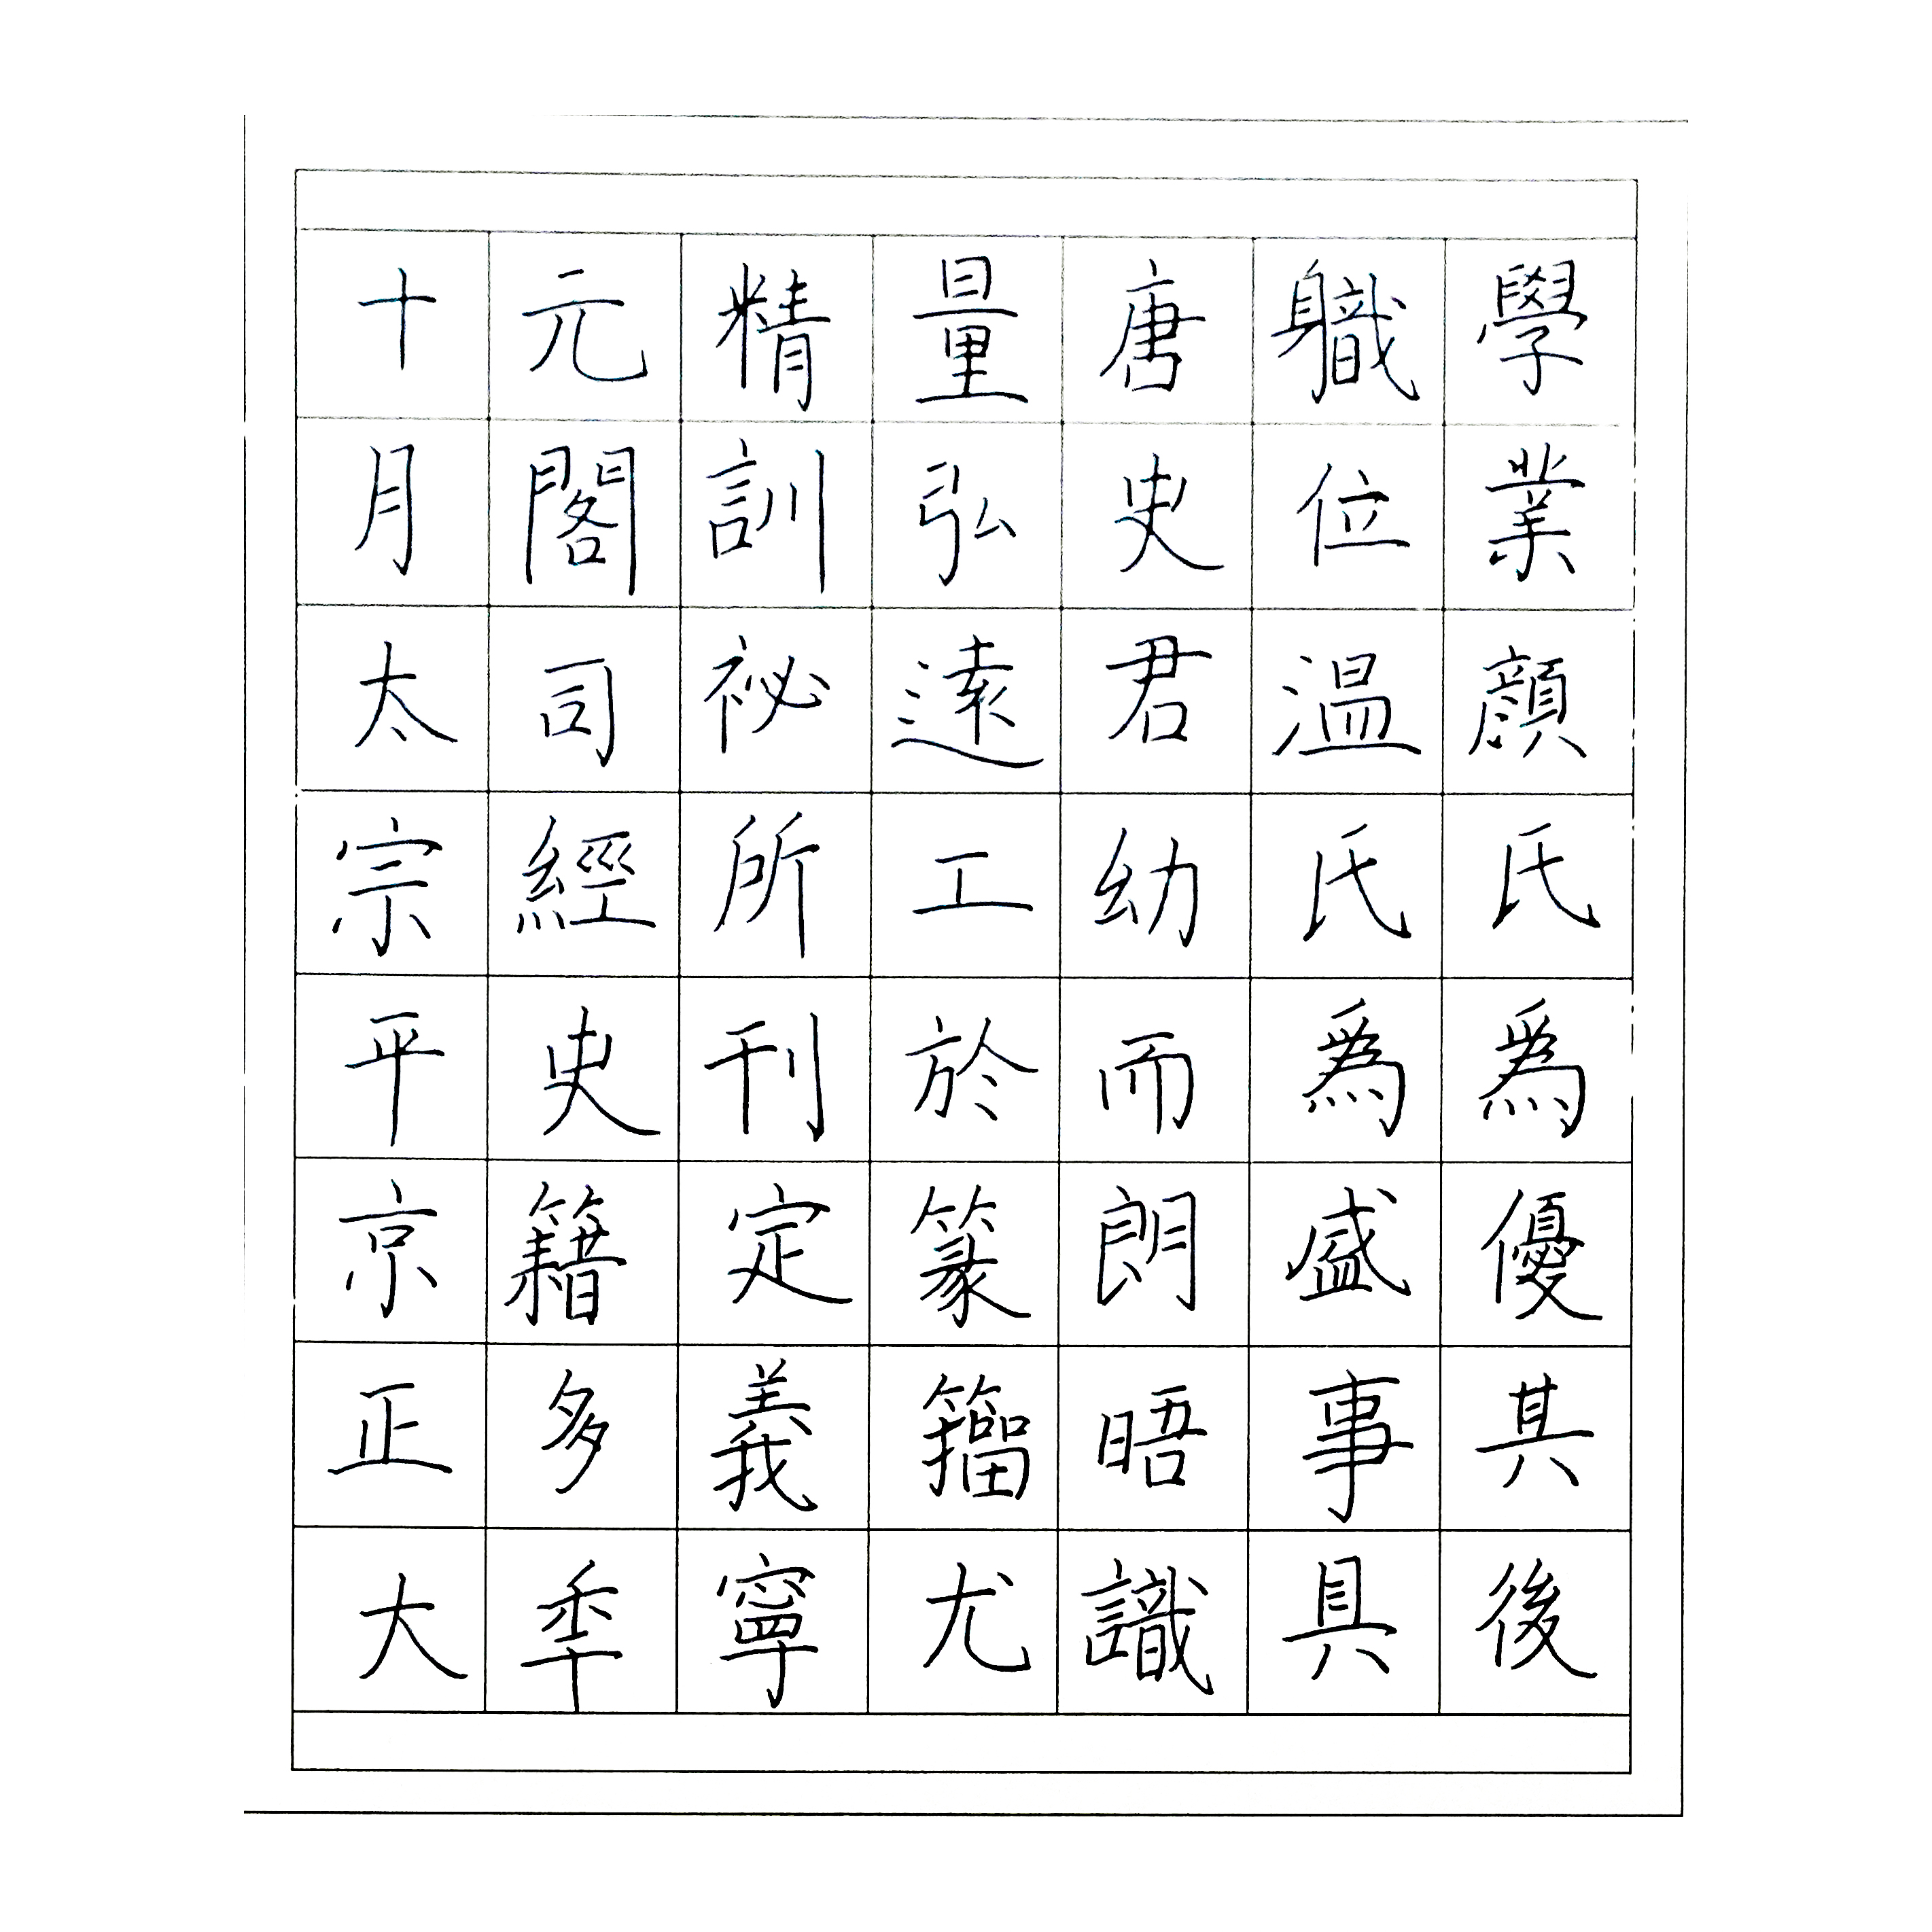 學業顏氏爲優其後
職位温氏爲盛事具
唐史君幼而朗晤識
量弘遠工於篆籀尤
精訓祕所刊定義寧
元閣司經史籍多年
十月太宗平京正大